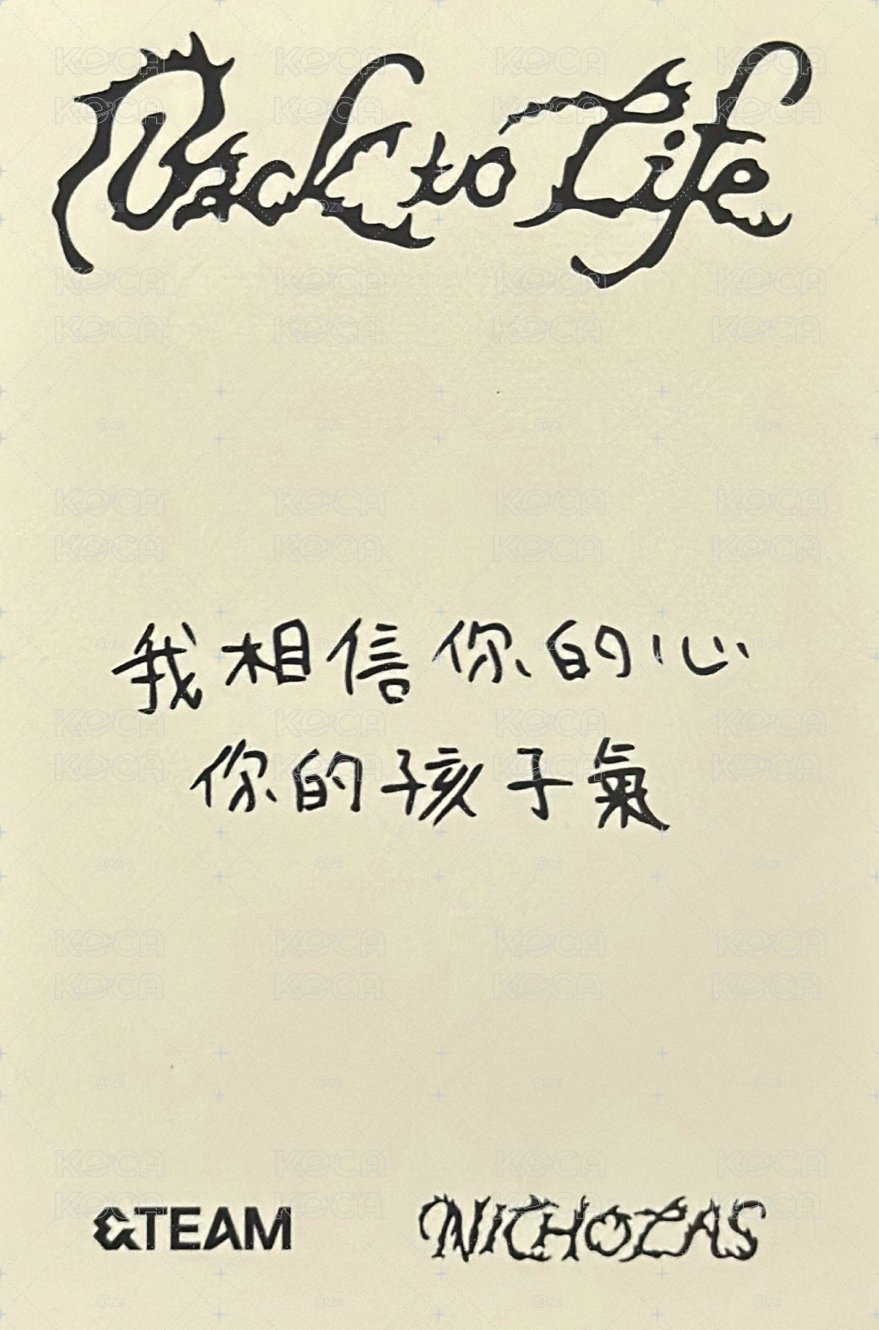 Back to Life
我相信你的心
你的孩子氣
&TEAM NICHOLAS